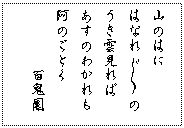 山のはに
はなれ〴〵の
うき雲見れば
あすのわかれも
何のごとく
百鬼園